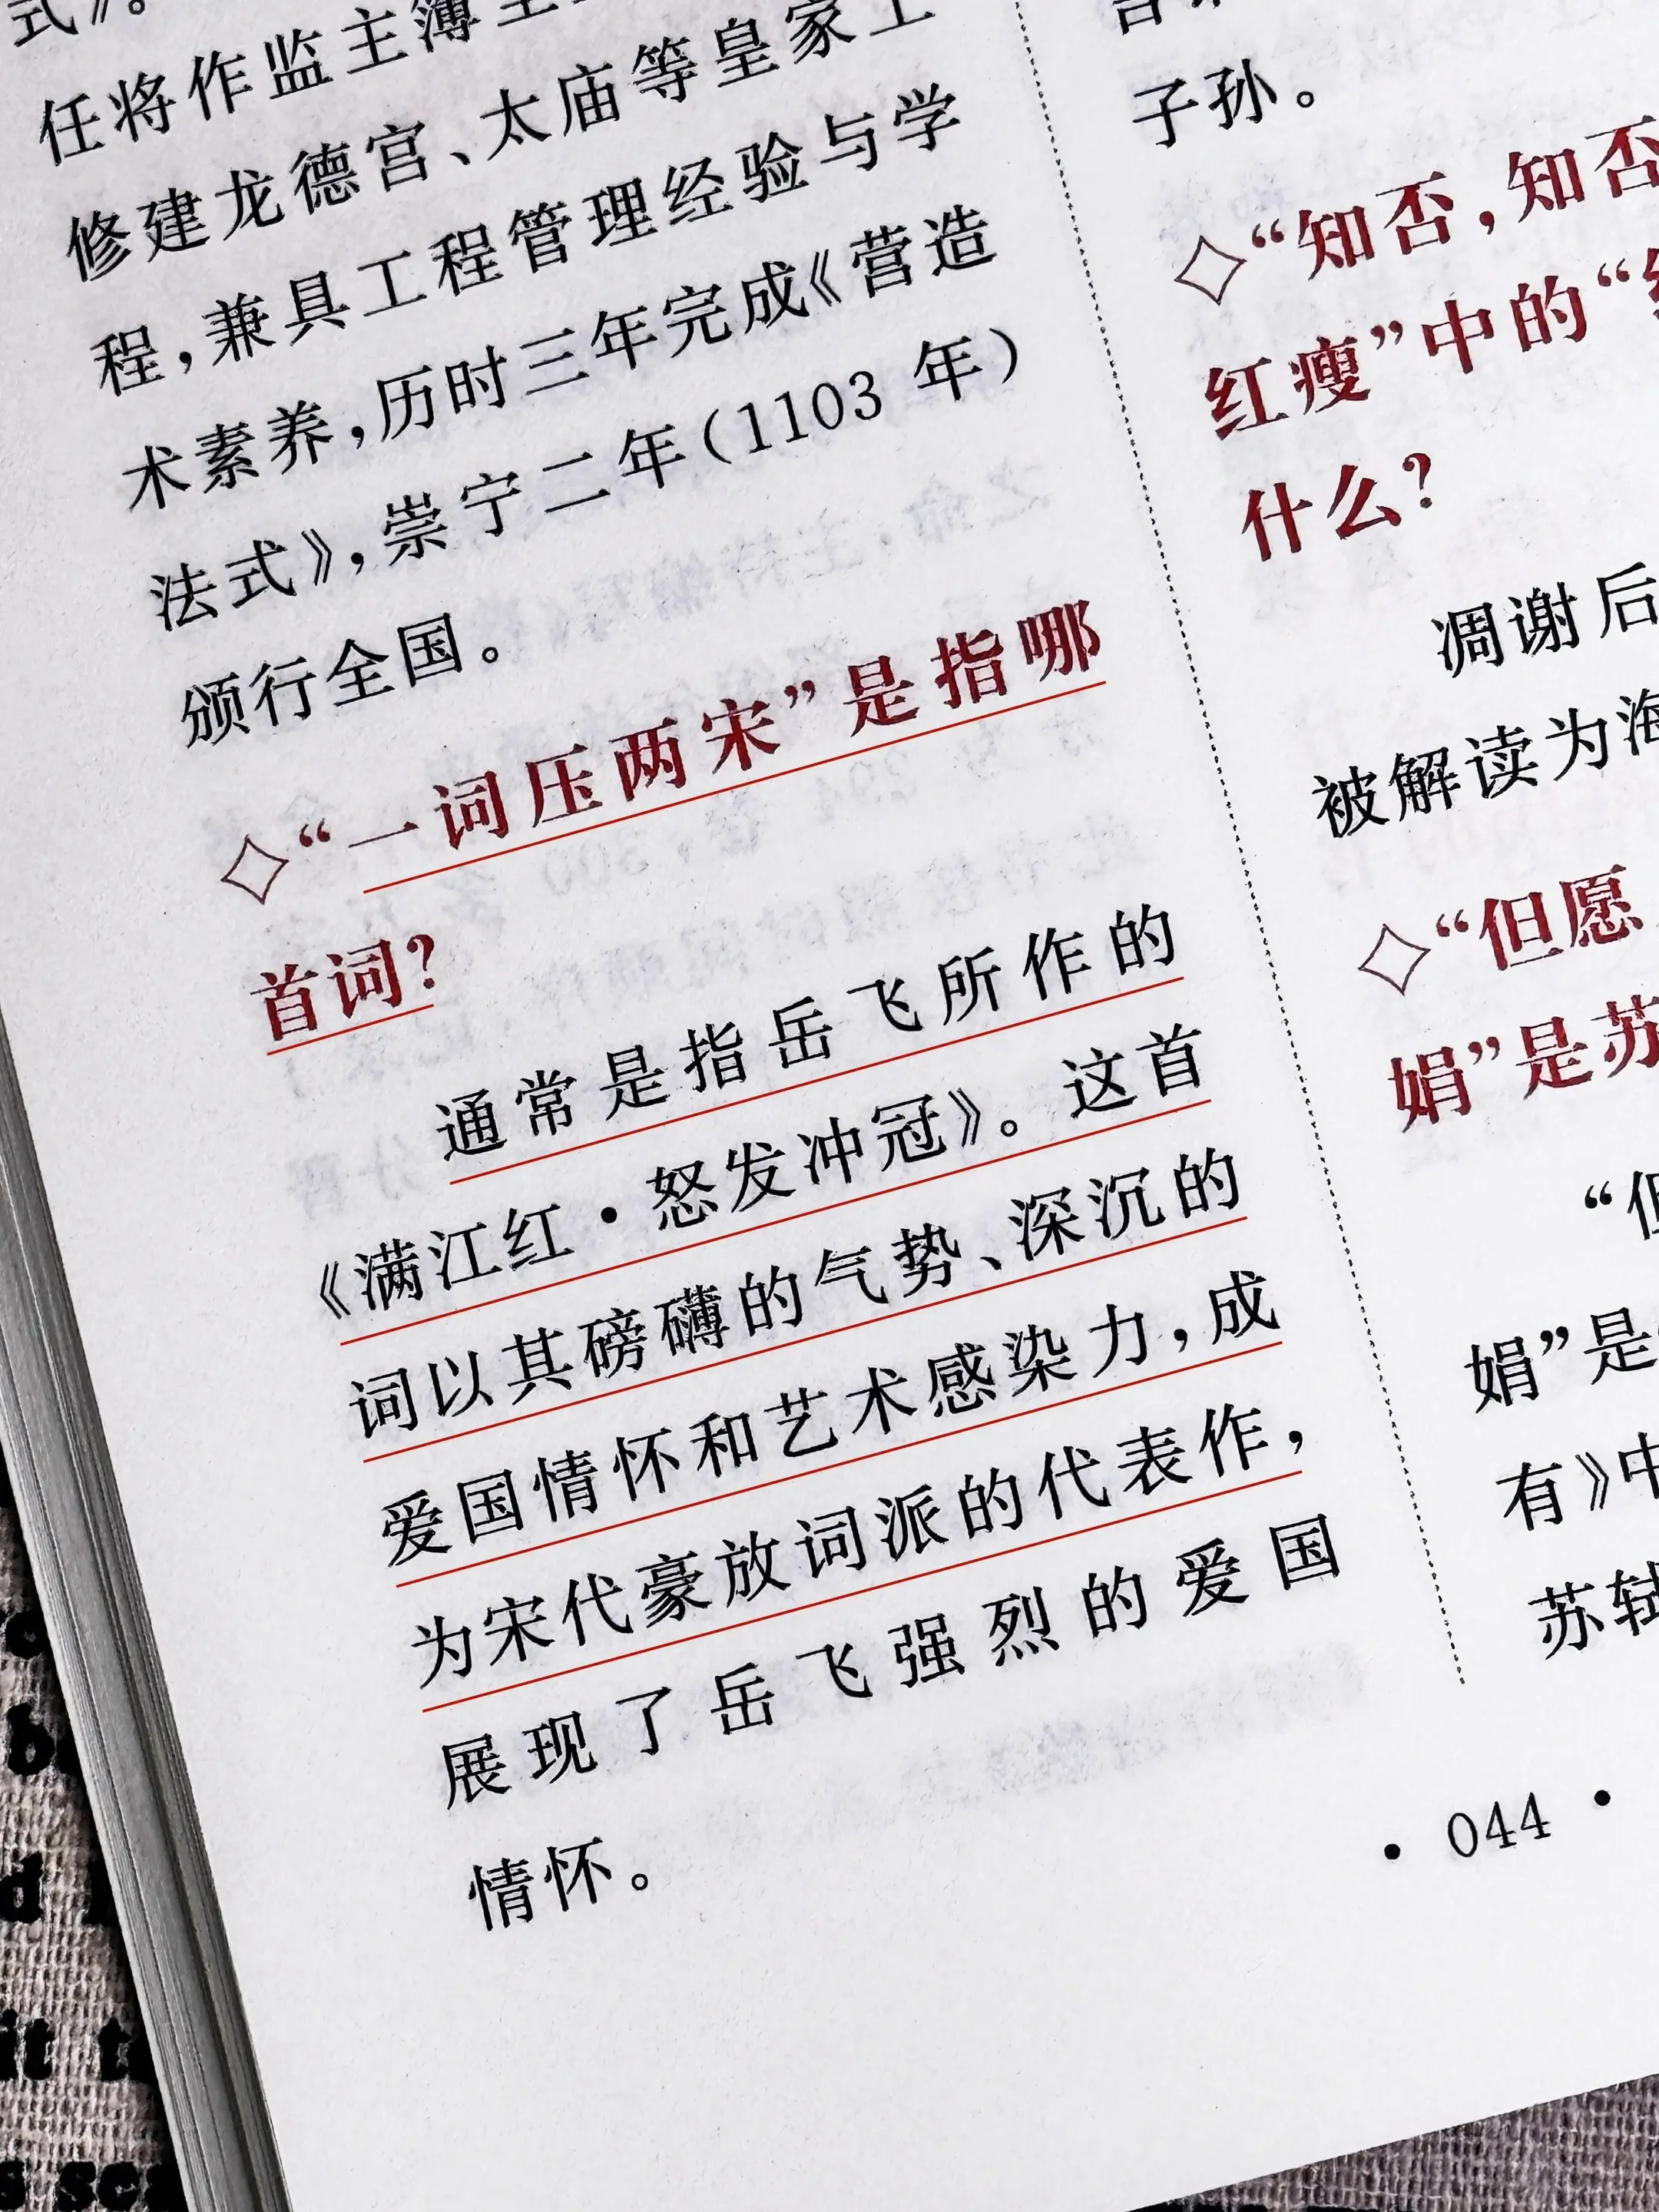 式》。
任将作监主簿
修建龙德宫、太庙等皇家工
程，兼具工程管理经验与学
术素养，历时三年完成《营造
法式》，崇宁二年（1103 年）
颁行全国。
◇“一词压两宋”是指哪
首词？
通常是指岳飞所作的
《满江红·怒发冲冠》。这首
词以其磅礴的气势、深沉的
爱国情怀和艺术感染力，成
为宋代豪放词派的代表作，
展现了岳飞强烈的爱国
情怀。
子孙。
◇“知否，知否
红瘦”中的“
什么？
凋谢后
被解读为海
◇“但愿
娟”是苏
“但
娟”是
有》中
苏轼
· 044 ·